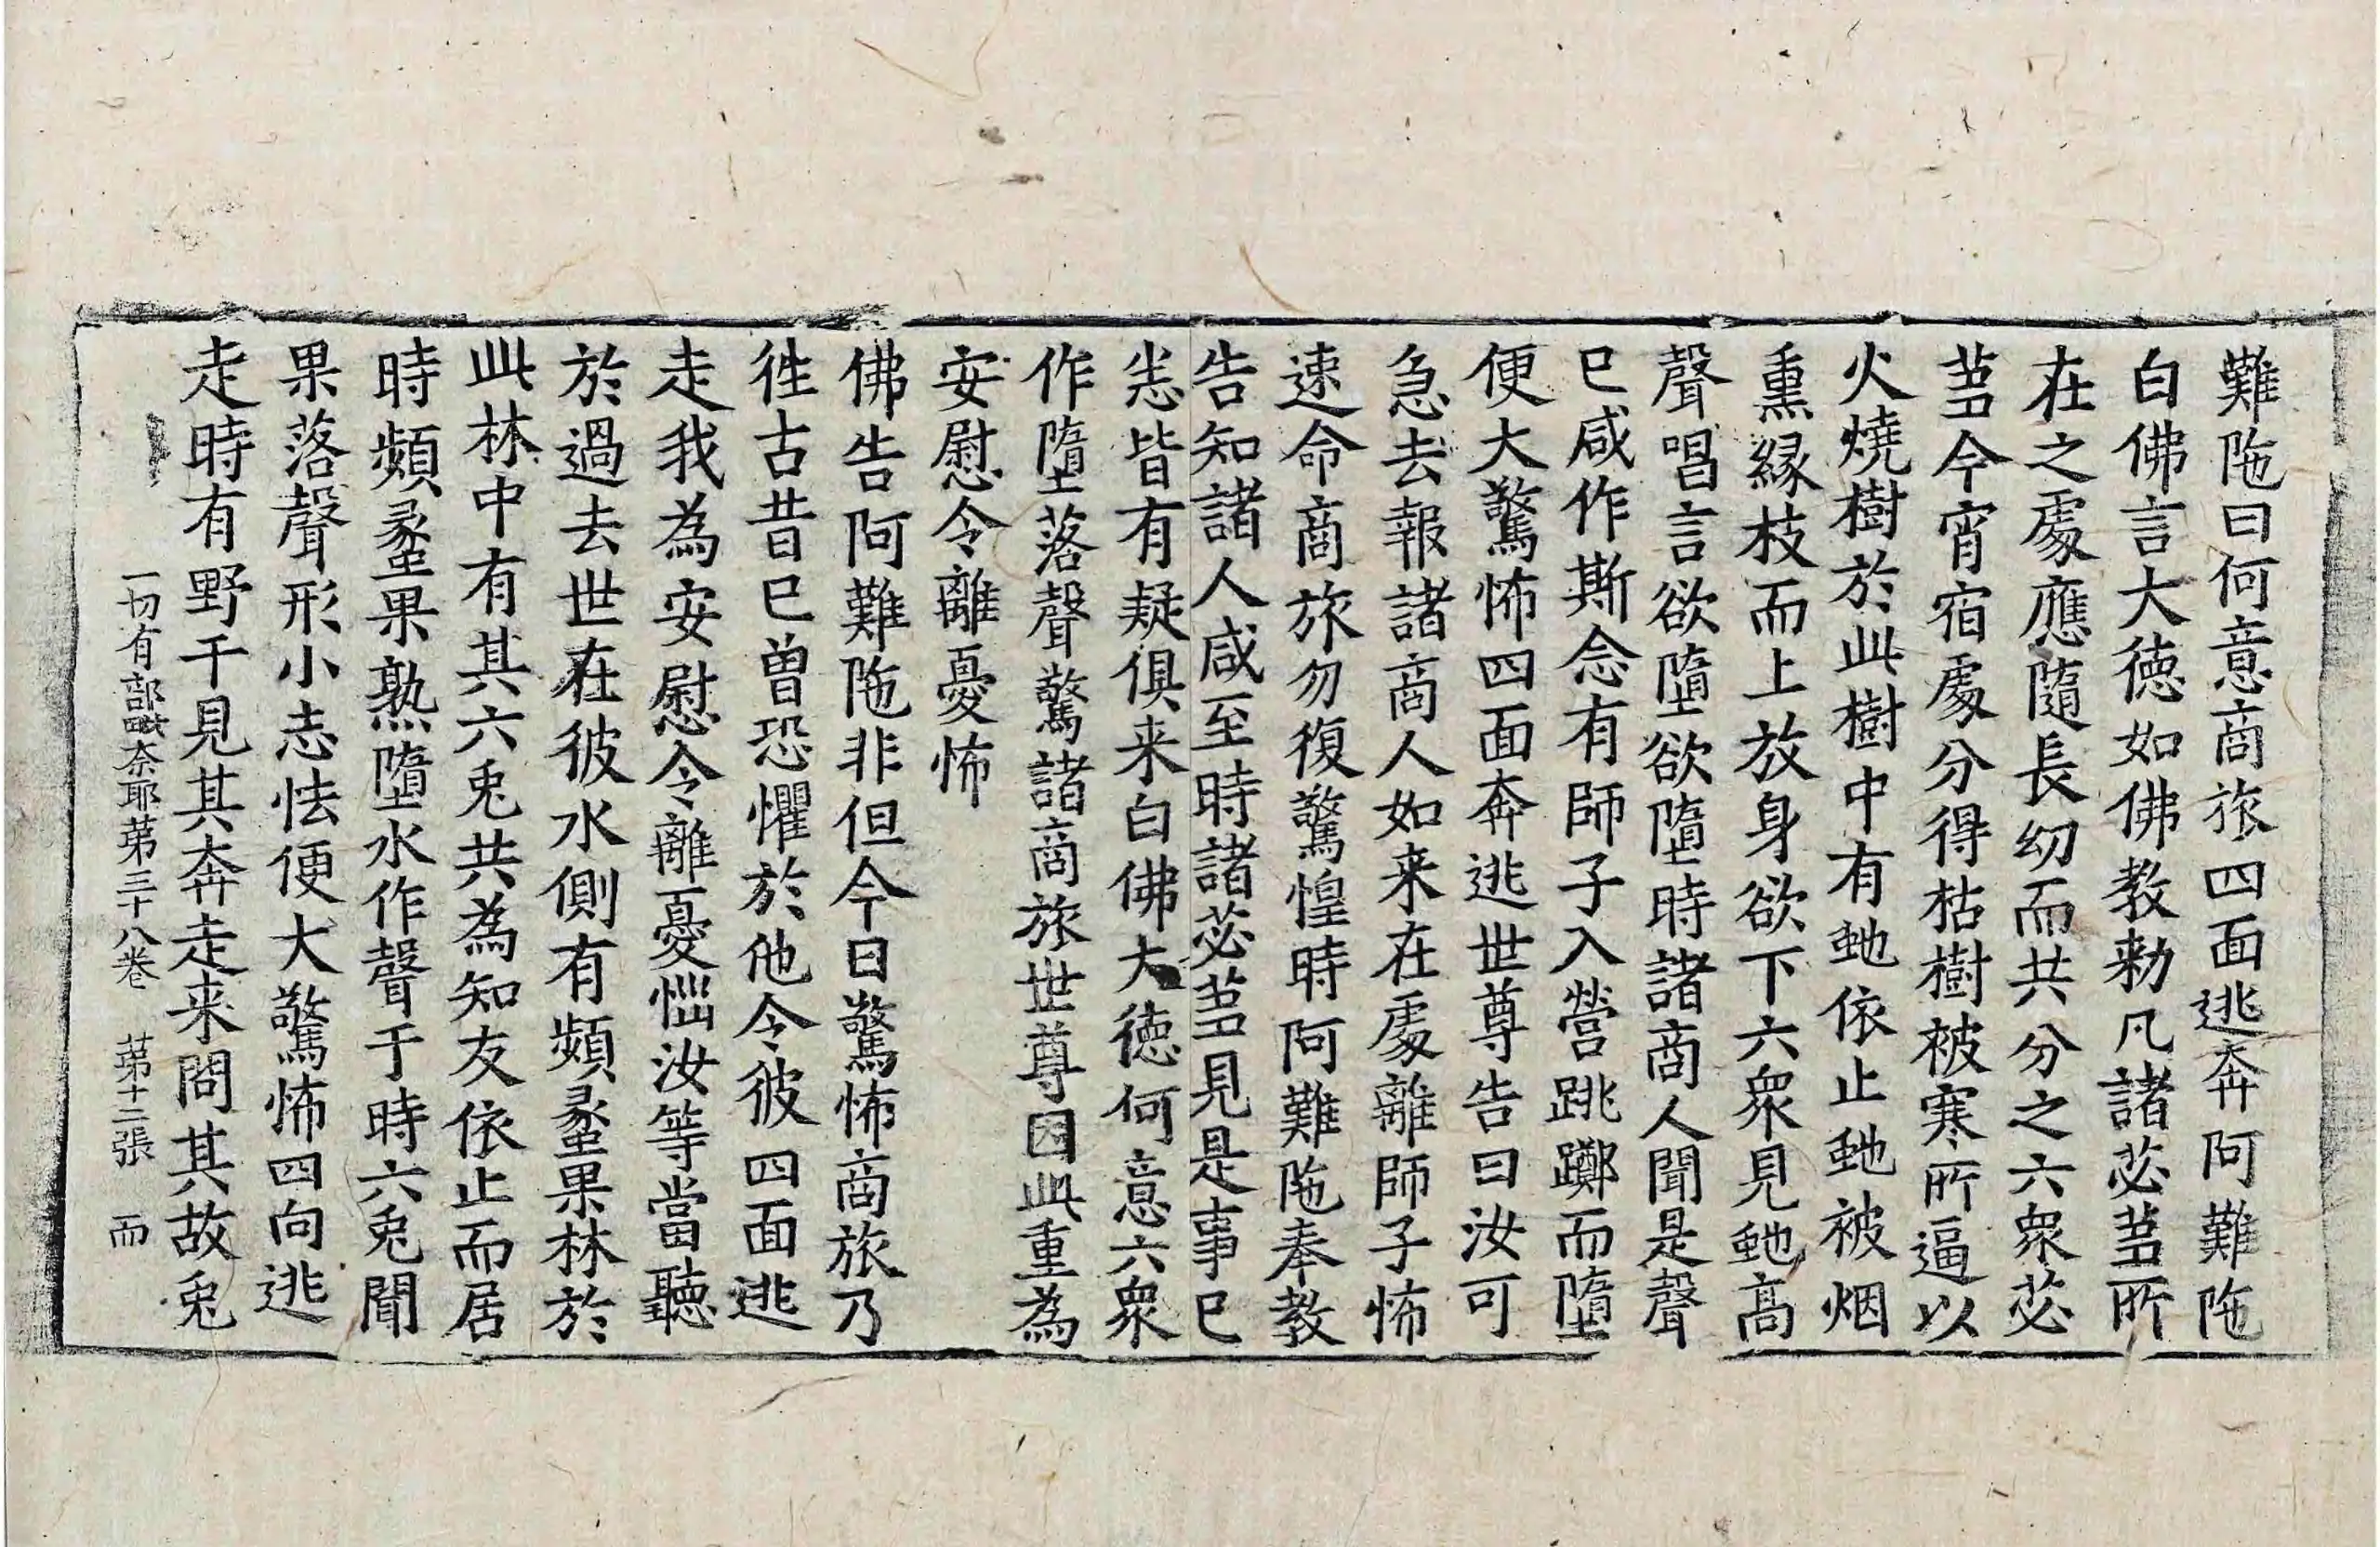 難陁曰何意商旅四面逃奔阿難陁
白佛言大德如佛教勑凡諸苾芻所
在之處應隨長幼而共分之六衆苾
芻今宵宿處分得枯樹被寒所逼以
火燒樹於此樹中有虵依止虵被烟
熏緣枝而上放身欲下六衆見虵高
聲唱言欲墮欲墮時諸商人聞是聲
已咸作斯念有師子入營跳躑而墮
便大驚怖四面奔逃世尊告曰汝可
急去報諸商人如来在處離師子怖
速命商旅勿復驚惶時阿難陁奉教
告知諸人咸至時諸苾芻見是事已
恙皆有疑俱来白佛大德何意六衆
作墮落聲驚諸商旅世尊因此重為
安慰令離憂怖
佛告阿難陁非但今日驚怖商旅乃
徃古昔已曾恐懼於他令彼四面逃
走我為安慰令離憂惱汝等當聽
於過去世在彼水側有頻蠡果林於
此林中有其六兎共為知友依止而居
時頻蠡果熟墮水作聲于時六兎聞
果落聲形小志怯便大驚怖四向逃
走時有野干見其奔走来問其故兎
一切有部毗奈耶苐三十八卷 苐十二張 而